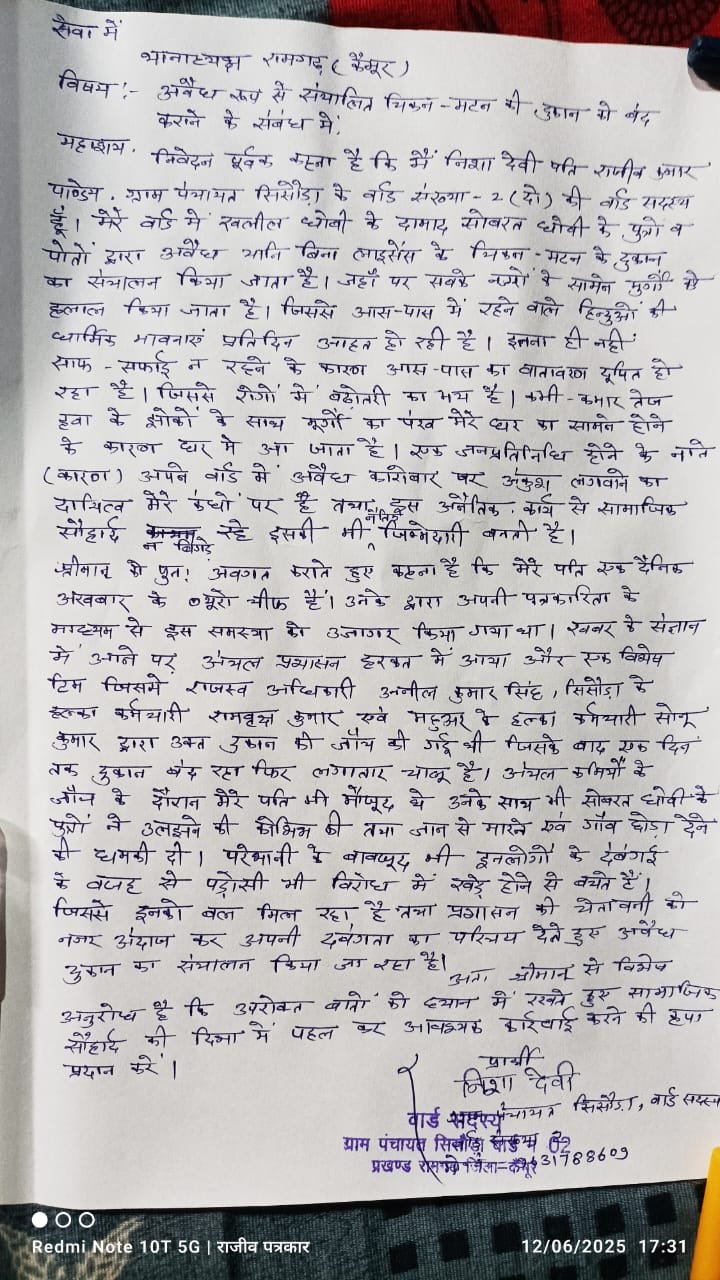 सेवा में
थानाध्यक्ष रामगढ़ (कैमूर)
विषय:- अवैध रूप से संचालित चिकन-मटन की दुकान को बंद
कराने के संबंध में।
महाशय,
निवेदन पूर्वक कहना है कि मैं निशा देवी पति राजीव कुमार
पाण्डेय, ग्राम पंचायत सिसौड़ा के वार्ड संख्या-2 (दो) की वार्ड सदस्य
हूँ। मेरे वार्ड में खलील धोबी के दामाद सोबरत धोबी के पुत्रों व
पोतों द्वारा अवैध यानि बिना लाइसेंस के चिकन-मटन के दुकान
का संचालन किया जाता है। जहाँ पर सबके नजरों के सामने मुर्गों को
हलाल किया जाता है। जिससे आस-पास में रहने वाले हिन्दुओं की
धार्मिक भावनाएं प्रतिदिन आहत हो रही है। इतना ही नहीं
साफ-सफाई न रहने के कारण आस-पास का वातावरण दूषित हो
रहा है। जिससे रोगों में बढोतरी का भय है। कभी-कभार तेज
हवा के झोकों के साथ मुर्गों का पंख मेरे घर का सामने होने
के कारण घर में आ जाता है। एक जनप्रतिनिधि होने के नाते
(कारण) अपने वार्ड में अवैध कारोबार पर अंकुश लगवाने का
दायित्व मेरे कंधों पर है तथा इस अनैतिक कार्य से सामाजिक
सौहार्द न बिगड़े रहे इसकी भी नैतिक जिम्मेदारी बनती है।
श्रीमान् को पुन: अवगत कराते हुए कहना है कि मेरे पति एक दैनिक
अखबार के ब्यूरो चीफ हैं। उनके द्वारा अपनी पत्रकारिता के
माध्यम से इस समस्या को उजागर किया गया था। खबर के संज्ञान
में आने पर अंचल प्रशासन हरकत में आया और एक विशेष
टिम जिसमें राजस्व अधिकारी अनील कुमार सिंह, सिसौड़ा के
हल्का कर्मचारी रामवृक्ष कुमार एवं महुअर के हल्का कर्मचारी सोनू
कुमार द्वारा उक्त दुकान की जाँच की गई थी जिसके बाद एक दिन
तक दुकान बंद रहा फिर लगातार चालू है। अंचल कर्मियों के
जाँच के दौरान मेरे पति भी मौजूद थे उनके साथ भी सोबरत धोबी के
पुत्रों ने उलझने की कोशिश की तथा जान से मारने एवं गाँव छोड़ा देने
की धमकी दी। परेशानी के बावजूद भी इनलोगों के दबंगई
के वजह से पड़ोसी भी विरोध में खड़े होने से बचते हैं।
जिससे इनको बल मिल रहा है तथा प्रशासन की चेतावनी को
नजर अंदाज कर अपनी दबंगता का परिचय देते हुए अवैध
दुकान का संचालन किया जा रहा है।
अतः श्रीमान् से विशेष
अनुरोध है कि उपरोक्त बातों को ध्यान में रखते हुए सामाजिक
सौहार्द की दिशा में पहल कर आवश्यक कार्रवाई करने की कृपा
प्रदान करें।
प्रार्थी
निशा देवी
पंचायत सिसौड़ा, वार्ड सदस्य
वार्ड सदस्य
ग्राम पंचायत सिसौड़ा वार्ड नं 02
प्रखण्ड रामगढ़ जिला-कैमूर
31788609
Redmi Note 10T 5G | राजीव पत्रकार
12/06/2025 17:31